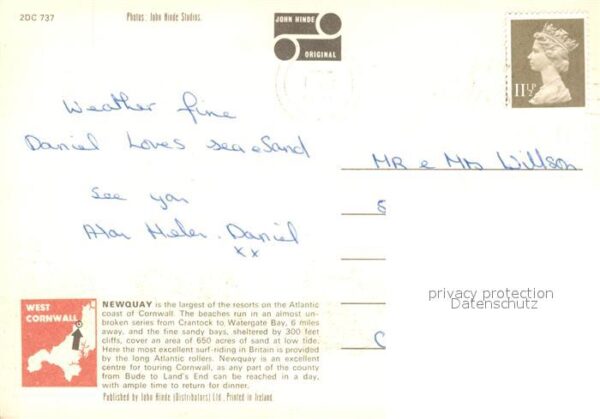 2DC 737
Photos: John Hinde Studios.
JOHN HINDE
ORIGINAL
11½P
Weather fine
Daniel Loves sea & Sand
See you
Alan Helen. Daniel
xx
MR & MRS Willson
privacy protection
Datenschutz
WEST
CORNWALL
NEWQUAY is the largest of the resorts on the Atlantic
coast of Cornwall. The beaches run in an almost un-
broken series from Crantock to Watergate Bay, 6 miles
away, and the fine sandy bays, sheltered by 300 feet
cliffs, cover an area of 650 acres of sand at low tide.
Here the most excellent surf-riding in Britain is provided
by the long Atlantic rollers. Newquay is an excellent
centre for touring Cornwall, as any part of the county
from Bude to Land's End can be reached in a day,
with ample time to return for dinner.
Published by John Hinde (Distributors) Ltd., Printed in Ireland.